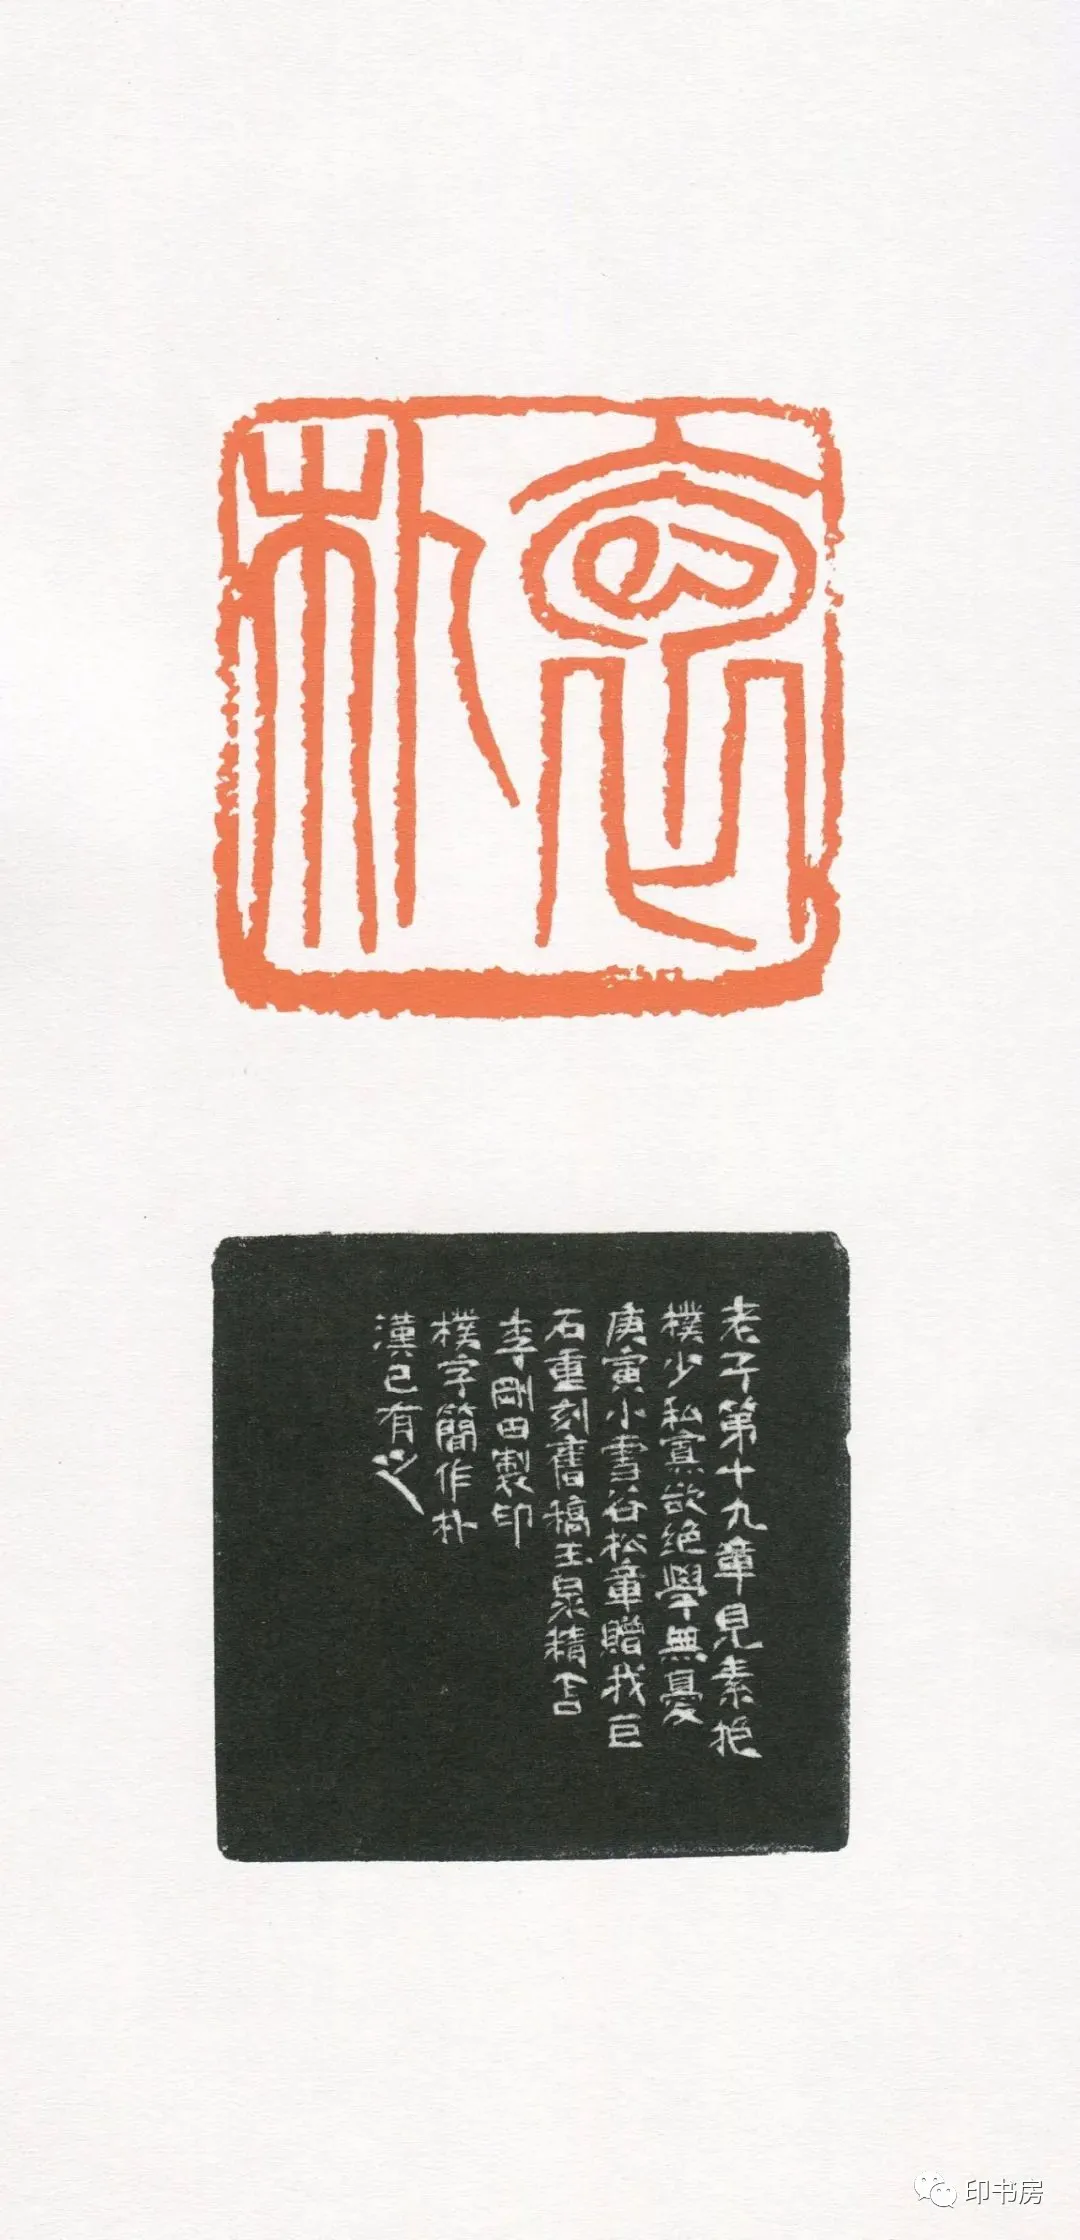 抱朴
老子第十九章見素抱
樸少私寡欲絕學無憂
庚寅小雪谷松章贈我巨
石重刻舊稿玉泉精舍
李剛田製印
樸字簡作朴
漢已有之
印书房